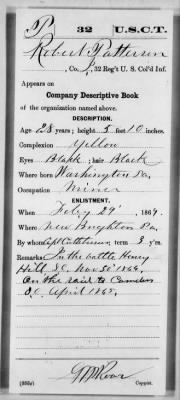 P 32 U.S.C.T.
Robert Patterson
, Co. , 32 Reg't U. S. Col'd Inf.
Appears on
Company Descriptive Book
of the organization named above.
DESCRIPTION.
Age 28 years; height 5 feet 10 inches.
Complexion Yellow
Eyes Blank ; hair Black
Where born Washington Pa.
Occupation Miner
ENLISTMENT.
When Feby 29 , 1864.
Where New Brighton Pa.
By whom Capt Cutchurn ; term 3 y'rs.
Remarks In the battle Henry
Hill S.C. Nov 30" 1864.
On the raid to Camden
S.C. April 1865.
Copyist.